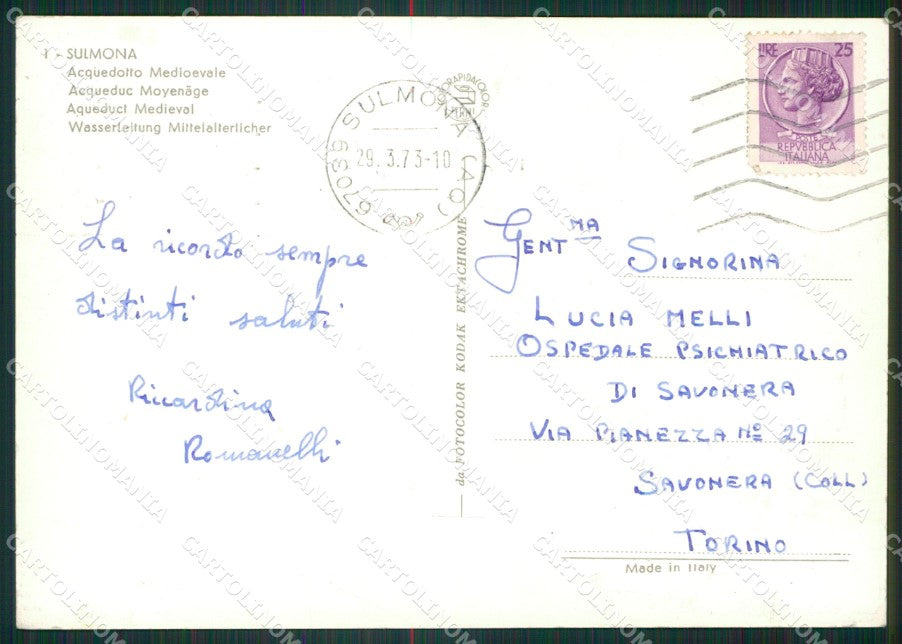 1 - SULMONA
Acquedotto Medioevale
Acqueduc Moyenâge
Aqueduct Medieval
Wasserleitung Mittelalterlicher
67039 SULMONA (AQ)
29.3.73-10
LIRE 25
POSTE
REPVBBLICA
ITALIANA
La ricordo sempre
distinti saluti
Riccardina
Romanelli
da FOTOCOLOR KODAK EKTACHROME
GENT MA
SIGNORINA
LUCIA MELLI
OSPEDALE PSICHIATRICO
DI SAVONERA
VIA PIANEZZA Nº 29
SAVONERA (COLL)
TORINO
Made in Italy
CARTOLINOMANIA